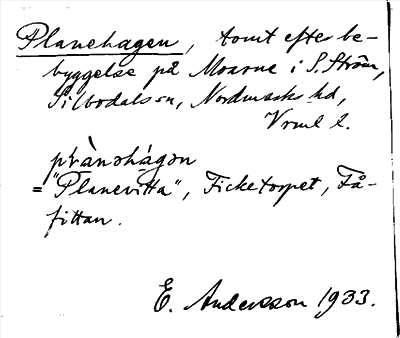 Planehagen, tomt efter be-
byggelse på Moarne i S. Ström,
Silbodals sn, Nordmarks hd,
Vrml l.
plànəhágən
= "Planevitta", Ficketorpet, Få-
fittan.
E. Andersson 1933.